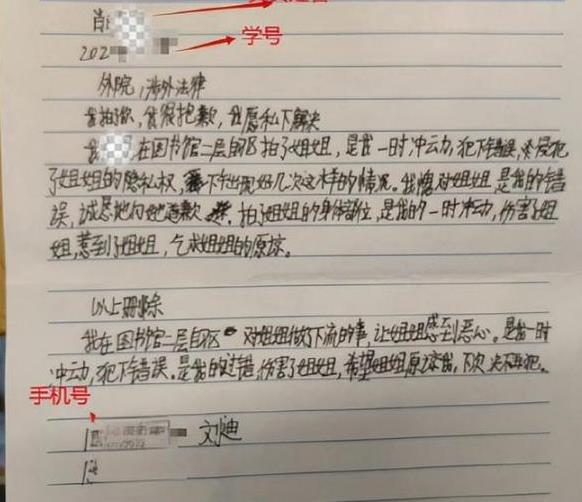 肖
202
学号
外院，涉外法律
我拍了你，我很抱歉，我愿私下解决
我 在图书馆二层自习区拍了姐姐，是我一时冲动，犯下错误，侵犯
了姐姐的隐私权， 下午出现好几次这样的情况。我愧对姐姐，是我的错
误，诚恳地向她道歉 。拍姐姐的身体部位，是我的一时冲动，伤害了姐
姐，惹到了姐姐，乞求姐姐的原谅。
以上删除
我在图书馆二层自习区 对姐姐做了下流的事，让姐姐感到恶心。是我一时
冲动，犯下错误。是我的过错，伤害了姐姐，希望姐姐原谅我，下次决不再犯。
手机号
1